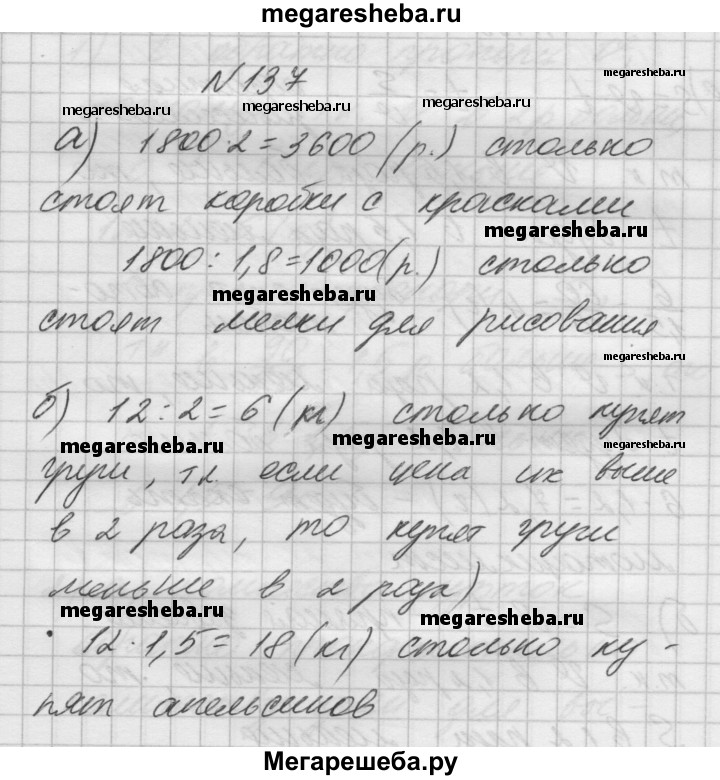 megaresheba.ru
N 137
megaresheba.ru
megaresheba.ru megaresheba.ru megaresheba.ru
а) 1800·2=3600 (р.) столько
стоят коробки с красками
megaresheba.ru
1800:1,8=1000(р.) столько
megaresheba.ru
стоят мелки для рисования
megaresheba.ru
б) 12:2=6 (кг) столько купят
megaresheba.ru megaresheba.ru megaresheba.ru
груш, т.к если цена их выше
в 2 раза, то купят груш
меньше в 2 раза)
megaresheba.ru megaresheba.ru
12·1,5=18 (кг) столько ку-
пят апельсинов
Мегарешеба.ру